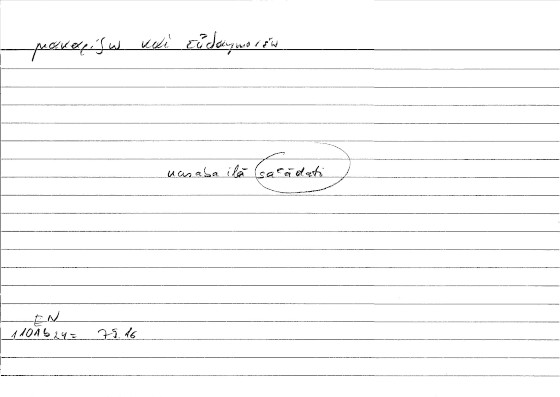 μακαρίζω καὶ εὐδαιμονίζω
nasaba ilā saʿādati
EN
1101b24= 79.16